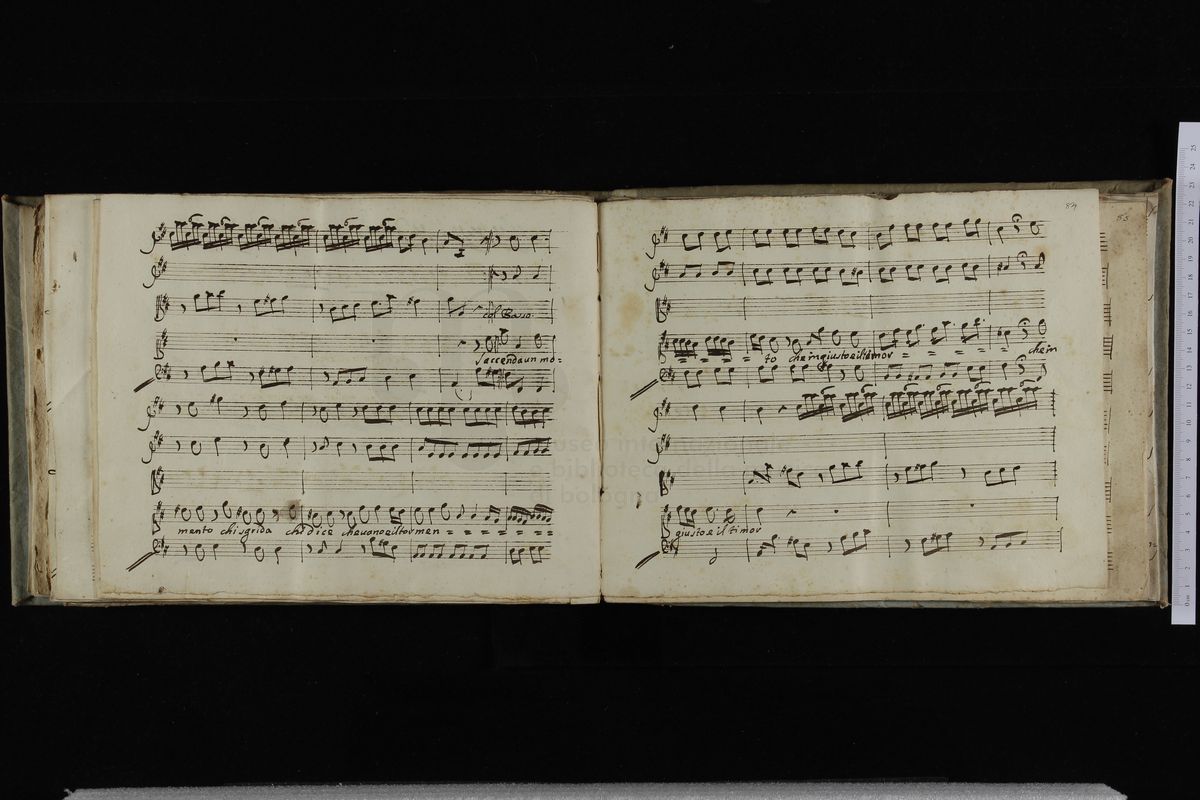 col Basso.
s'accenda un mo=
mento chi sgrida chi dice che vano è il tormen = = = = = =
84
= = = = to che ingiusto è il timor = = = = = che in
giusto è il timor
85
museo internazionale
e biblioteca della
di bologna